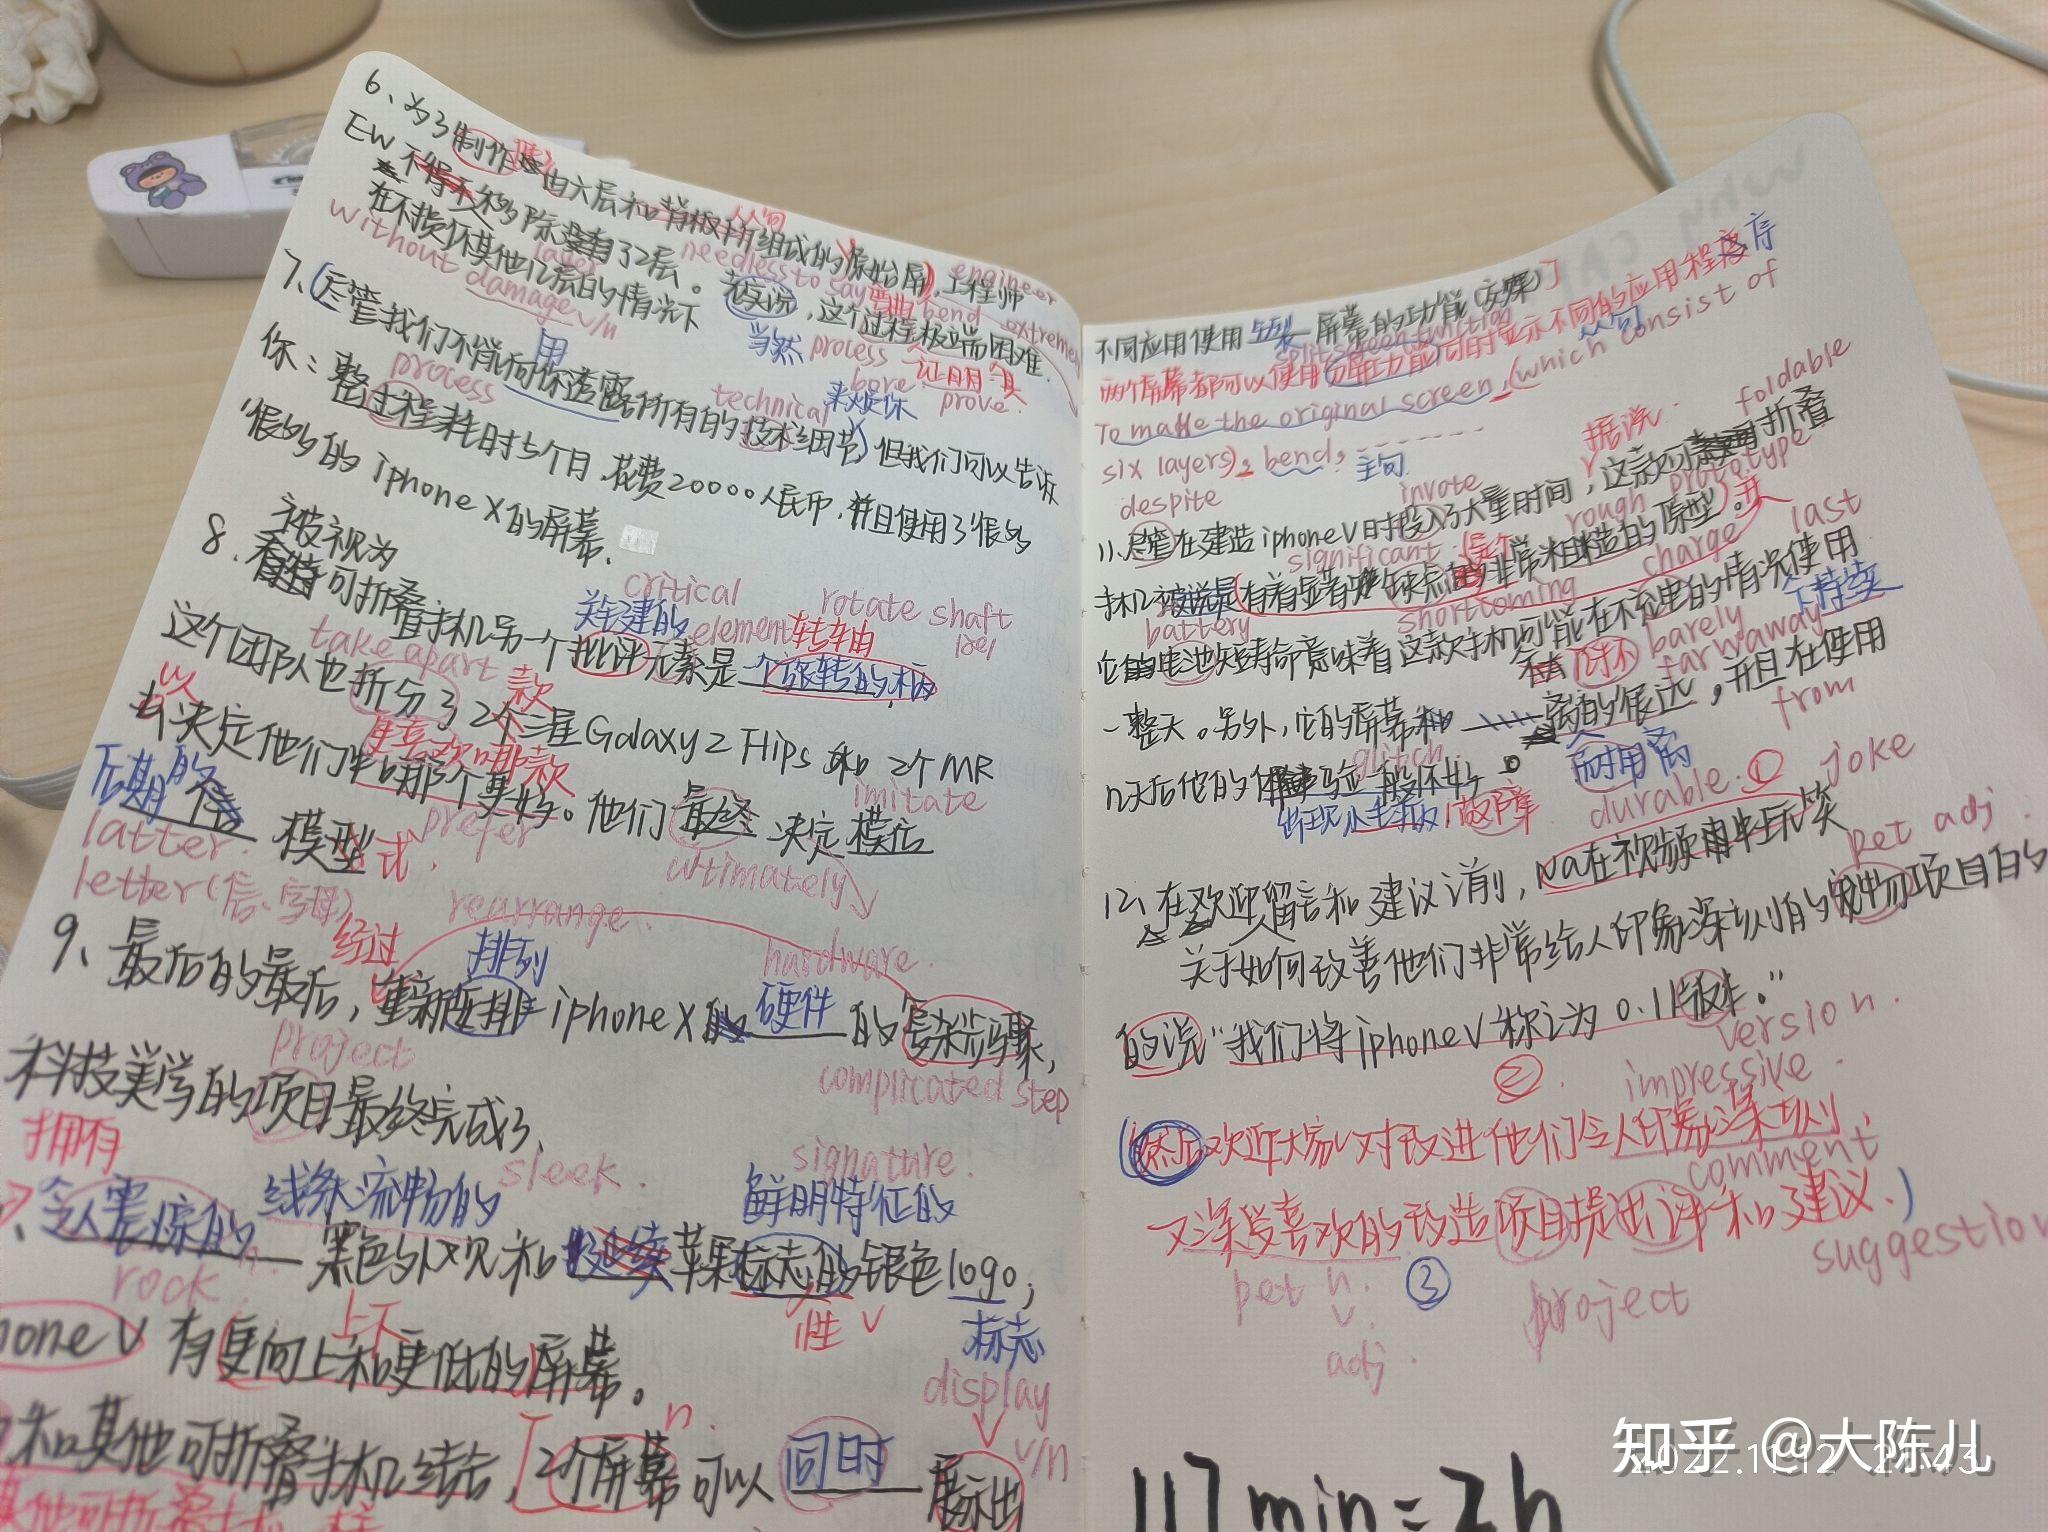 6、为了制作由六层和背板所组成的原始屏,工程师
EW 不得不移除没有了2层。 needless to say 弯曲 bend extremely
engineer
layer
在不损坏其他几层的情况下 无须说,这个过程极端困难.
without damage v/n 当然 process 证明 真
bore prove.
7、(尽管我们不能向你透露所有的技术细节)但我们可以告诉
用
technical 来烦你
process
你:整过程耗时5个月,花费20000人民币,并且使用了很多
很多的 iphone X的屏幕.
被视为
8. 可折叠手机另一个批评元素是一个旋转的
critical
关键的 element 转轴
rotate shaft
take apart
款
这个团队也拆分了2个三星Galaxy Z Flips 和 2个MR
以决定他们 哪个更好。他们最终 决定 模仿
更喜欢哪款
imitate
后期的
latter 模型式. prefer
ultimately
letter(信、字母)
rearrange
经过
排列
hardware.
9、最后的最后,重新安排 iphone X 硬件 的复杂步骤,
project
complicated step
科技美学的项目最终完成了、
拥有
sleek.
signature.
令人震惊的 线条流畅的 鲜明特征的
黑色外观和 苹果标志的银色logo,
rock 性 v 标志
上下
hone V 有更向上和更低的屏幕。
display
v/n
n.
和其他可折叠手机结合,2个屏幕可以 同时 展示出
其他可折叠手机一样
不同应用使用 分裂 屏幕的功能(安牒)
split screen function
从句
两个屏幕都可以使用分屏功能同时显示不同的应用程序
To make the original screen,(which consist of
six layers), bend, - - - - - -
主句
据说.
foldable
despite
invote
rough prototype
11、尽管在建造iphone V时投入了大量时间,这款可折叠
significant
手机被说是有着显著缺点的非常粗糙的原型。其
shortcoming
charge
last
battery
它的电池短寿命意味着这款手机可能在不充电的情况使用
几乎不 barely
个持续
far away
from
一整天。另外,它的屏幕和 离的很远,并且在使用
glitch.
耐用
n天后他的体验一般不好。
出现小毛病/故障
durable. ① joke
12、在欢迎留言和建议前,Na在视频中玩笑
pet adj.
关于如何改善他们非常给人印象深刻的宠物项目的
的说“我们将iphone V 称之为 0.1版本。”
version.
② .
impressive.
(然后欢迎大家对改进他们令人印象深刻,
comment
又深受喜欢的改造项目提出评和建议.)
suggestion
pet n. ③ project
v.
adj.
117min=2h
知乎 @大陈儿
2022.11.12 21:43